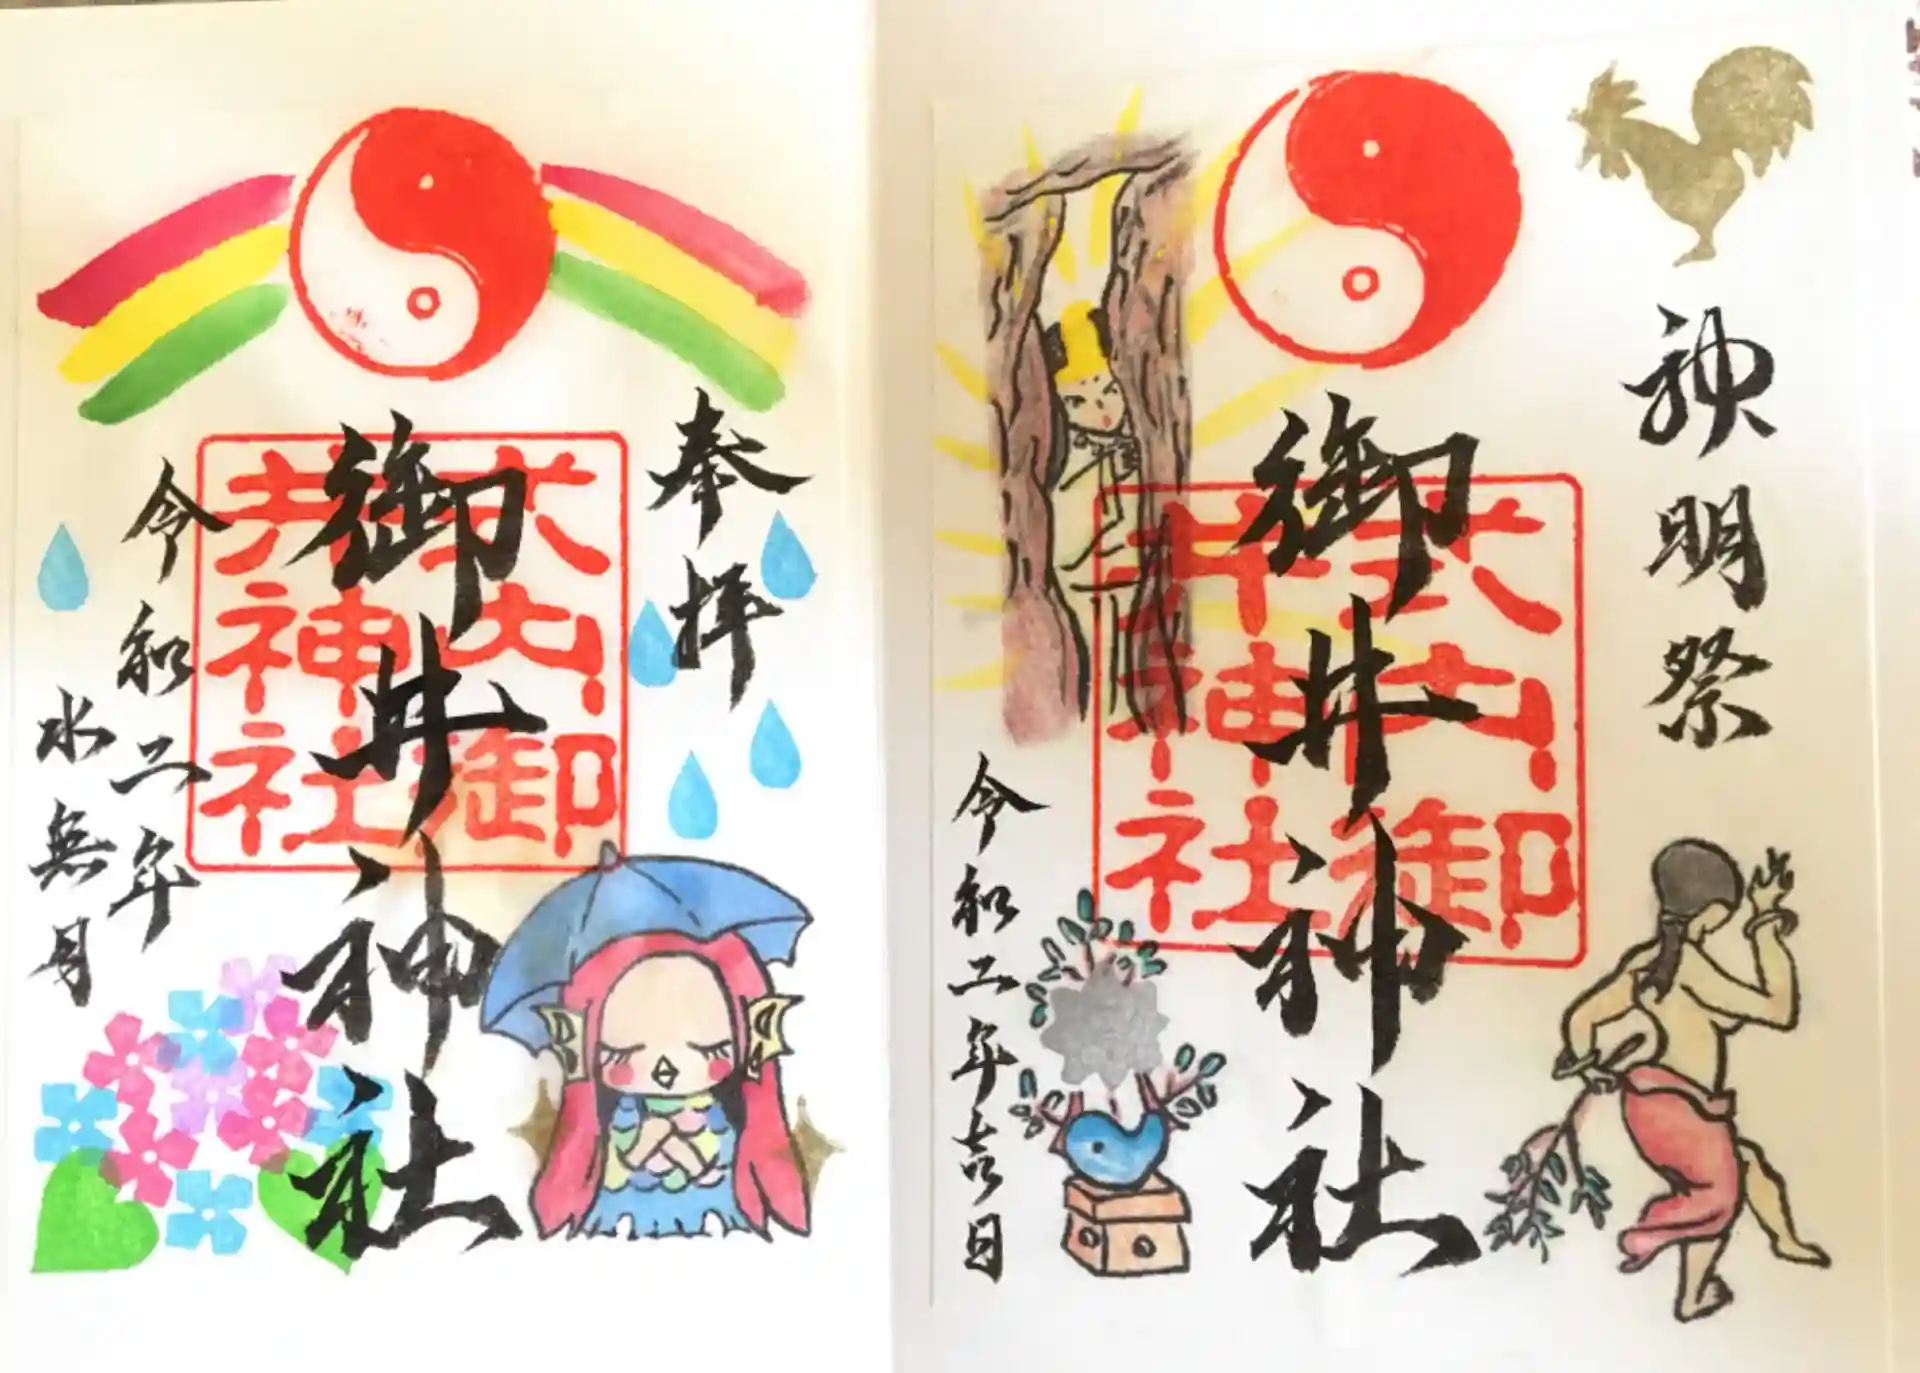 奉拝
御井神社
式内御井神社
令和二年
水無月
神明祭
御井神社
式内御井神社
令和二年吉日